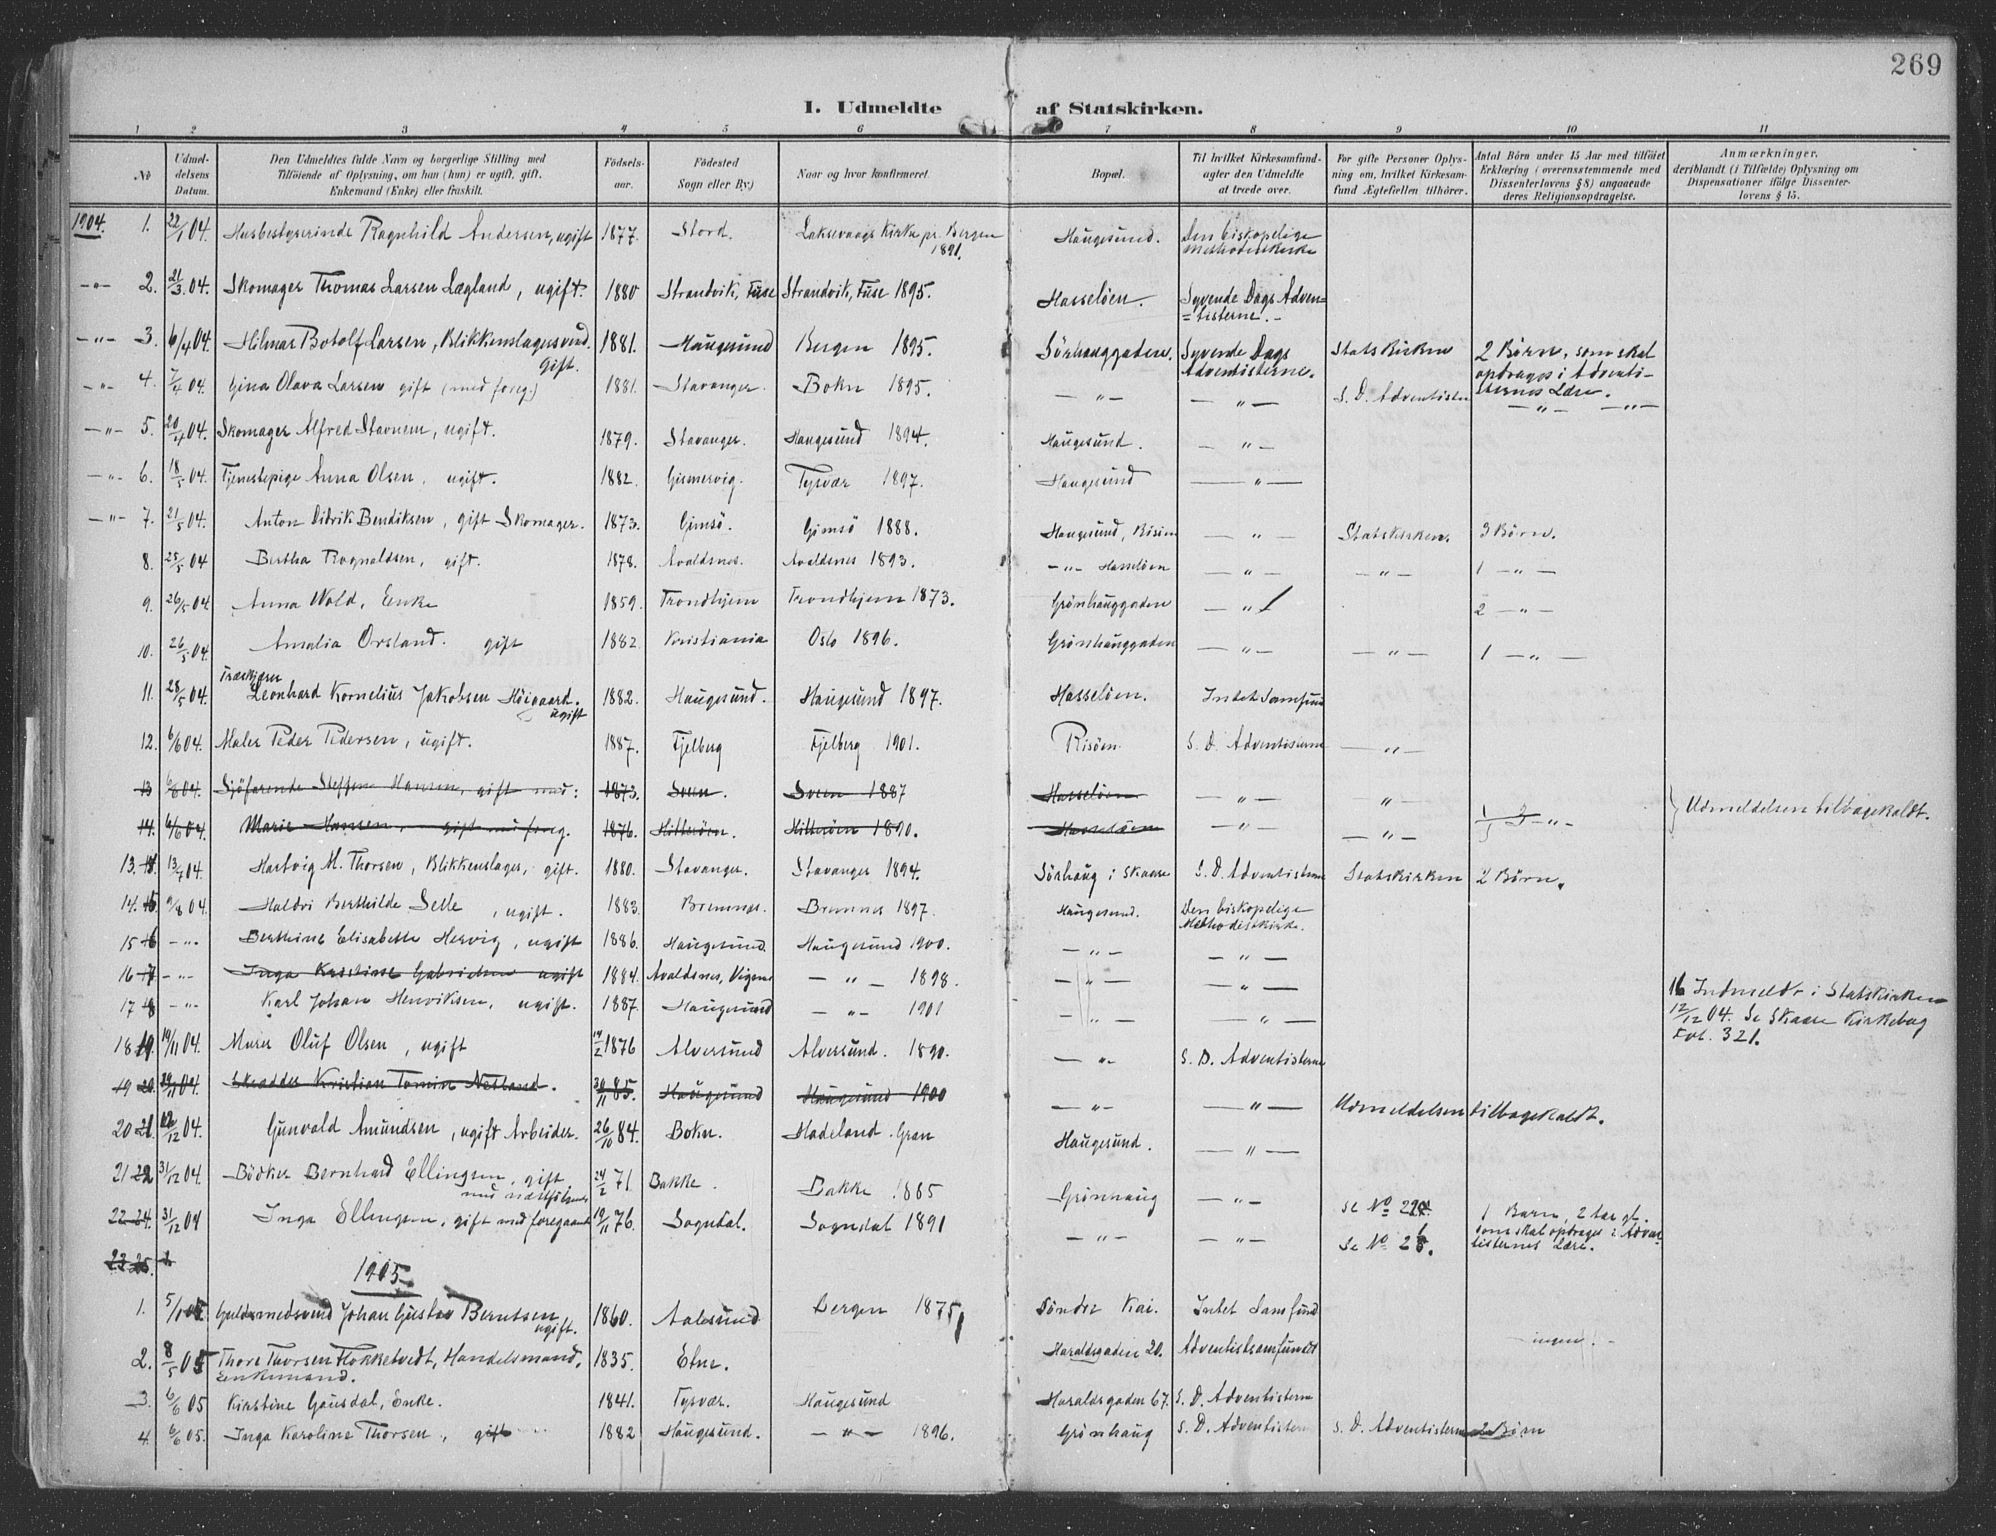 269
I. Udmeldte af Statskirken.
1 2 3 4 5 6 7 8 9 10 11
No
Udmeldelsens Datum.
Den Udmeldtes fulde Navn og borgerlige Stilling med
Tilföiende af Oplysning, om han (hun) er ugift, gift,
Enkemand (Enke) eller fraskilt.
Födselsaar.
Födested
Sogn eller By.)
Naar og hvor konfirmeret.
Bopæl.
Til hvilket Kirkesamfund-
agter den Udmeldte
at træde over.
For gifte Personer Oplys-
ning om, hvilket Kirkesam-
fund Ægtefællen tilhörer.
Antal Börn under 15 Aar med tilföiet
Erklæring (overensstemmende med
Dissenterlovens § 8) angaaende
deres Religionsopdragelse.
Anmærkninger,
deriblandt (i Tilfælde) Oplysning om
Dispensationer ifölge Dissenter-
lovens § 15.
1904. 1. 22/1 04. Husbestyrerinde Ragnhild Andersen, ugift 1877. Stord. Laksevaags Kirke pr. Bergen 1891. Haugesund. Den biskopelige Methodistkirke
-"- 2. 21/3 04. Skomager Thomas Larsen Lægland, ugift. 1880 Strandvik, Fuse Strandvik, Fuse 1895. Hasseløen. Syvende Dags Adven=
=tisterne.-
-"- 3. 6/4 04. Hilmar Botolf Larsen, Blikkenslagersvend. gift. 1881. Haugesund Bergen 1895. Sörhauggaden. Syvende Dags Adventisterne. Statskirken 2 Børn, som skal
opdrages i Adventi-
sternes Lære.
-"- 4. 7/4 04. Gina Olava Larsen gift (med foreg.) 1881. Stavanger. Bokn 1895. -"- -"- S. D. Adventisten -"- -"-
-"- 5. 20/4 04. Skomager Alfred Stavnem, ugift. 1879. Stavanger. Haugesund 1894. Haugesund. -"-
-"- 6. 18/5 04. Tjenestepige Anna Olsen, ugift. 1882. Gismervig. Tysvær 1897. Haugesund -"-
-"- 7. 21/5 04. Anton Didrik Bendiksen, gift Skomager. 1873. Gimsö. Gimsö 1888. Haugesund, Risöen -"- Statskirken. 3 Børn.
8. 25/5 04 Bertha Ragnaldsen, gift. 1878. Avaldsnes. Avaldsnes 1893. -"- Hasseløen -"- -"- 1 -"-
9. 26/5 04 Anna Wold, Enke 1859. Trondhjem Trondhjem 1873. Grönhauggaden -"- 2 -"-
10. 26/5 04. Amalia Orsland. gift 1882. Kristiania Oslo 1896. Grønhauggaden -"- -"- 1 -"-
11. 28/5 04. Træskjærer Leonhard Kornelius Jakobsen Höigaard. ugift 1882. Haugesund. Haugesund 1897. Hasseløen. Intet Samfund
12. 6/6 04. Maler Peder Pedersen, ugift. 1887. Fjelberg Fjelberg 1901. Risöen. S. D. Adventisterne -"-
13 6/6 04. Sjöfarende Steffen Hansen, gift med: 1873. Sveen. Sveen 1887 Hasseløen -"- -"-
14. 6/6 04. Marie Hansen, gift m. foreg. 1876. Hitterøen. Hitterøen 1890. Hasseløen -"- -"- -"- } Udmeldelsen tilbagekaldt.
13. 13/7 04. Hartvig M. Thorsen, Blikkenslager, gift. 1880. Stavanger. Stavanger 1894. Sörhaug i Skaare S. D. Adventisterne Statskirken 2 Børn.
14. 15 9/8 04. Haldri Berthilde Selle, ugift. 1883. Bremnes. Bremnes 1897. Haugesund. Den biskopelige Methodistkirke.
15 16 -"- Berthine Elisabette Hervig, ugift 1886. Haugesund. Haugesund 1900. -"- -"-
16 17 -"- Inga Kristine Gabrielsen ugift 1884. Avaldsnes, Vigsnes -"- 1898. -"- -"- 16 Indmeldt i Statskirken
12/12 04. Se Skaare Kirkebog
Fol. 321.
17 18 -"- Karl Johan Henriksen, ugift. 1887. Haugesund -"- 1901 -"- -"-
18 19. 19/11 04. Murer Oluf Olsen, ugift 14/2 1876 Alversund Alversund. 1890. -"- S. D. Adventisterne
19 20. 29/11 04. Skrædder Kristian Netland. 30/11 85. Haugesund Haugesund 1900 -"- -"- Udmeldelsen tilbagekaldt.
20 21. 12/12 04. Gunvald Amundsen, ugift Arbeider. 26/10 84. Bokn. Hadeland. Gran Haugesund. -"-
21 22 31/12 04. Bödker Bernhard Ellingsen, gift med næstfølgende 24/2 71. Bakke. Bakke 1885 Grönhaug -"- Se No 22 1 Barn, 2 aar gl.
som skal opdrages i Adven-
tisternes Lære.
22 24. 31/12 04 Inga Ellingsen, gift med foregaaende 19/11 76. Sogndal. Sogndal 1891 -"- -"- Se No 21.
23 25.
1905
1. 5/1 05. Guldsmedsvend Johan Gustav Berntsen ugift. 1860. Aalesund Bergen 1875 Søndre Kai. Intet Samfund
2. 8/5 05 Thore Thorsen Flokketvedt, Handelsmand, Enkemand. 1835. Etne. Haraldsgaden 20. Adventistsamfundet ingen
3. 6/6 05 Kirstine Gausdal, Enke. 1841. Tysvær. Haugesund Haraldsgaden 67. S. D. Adventisterne
4. 6/6 05. Inga Karoline Thorsen, gift 1882 Haugesund. -"- 1896. Grönhaug S. D. Adventisterne S. D. Adventisterne 2 Børn